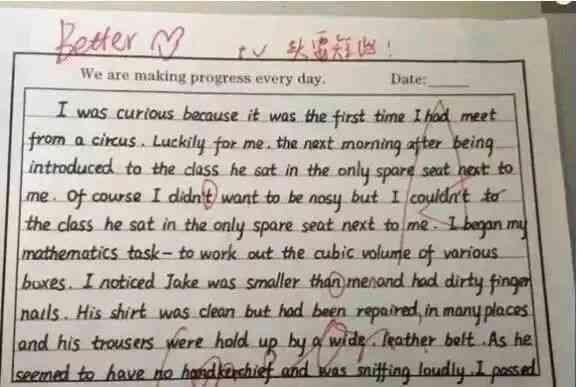 Better
头要短出!
We are making progress every day. Date:
I was curious because it was the first time I had meet
from a circus. Luckily for me. the next morning after being
introduced to the class he sat in the only spare seat next to
me. Of course I didn't want to be nosy but I couldn't to
the class he sat in the only spare seat next to me. I began my
mathematics task- to work out the cubic volume of various
boxes. I noticed Jake was smaller than men and had dirty finger
nails. His shirt was clean but had been repaired, in many places
and his trousers were hold up by a wide. leather belt. As he
seemed to have no handkerchief and was sniffing loudly. I passed